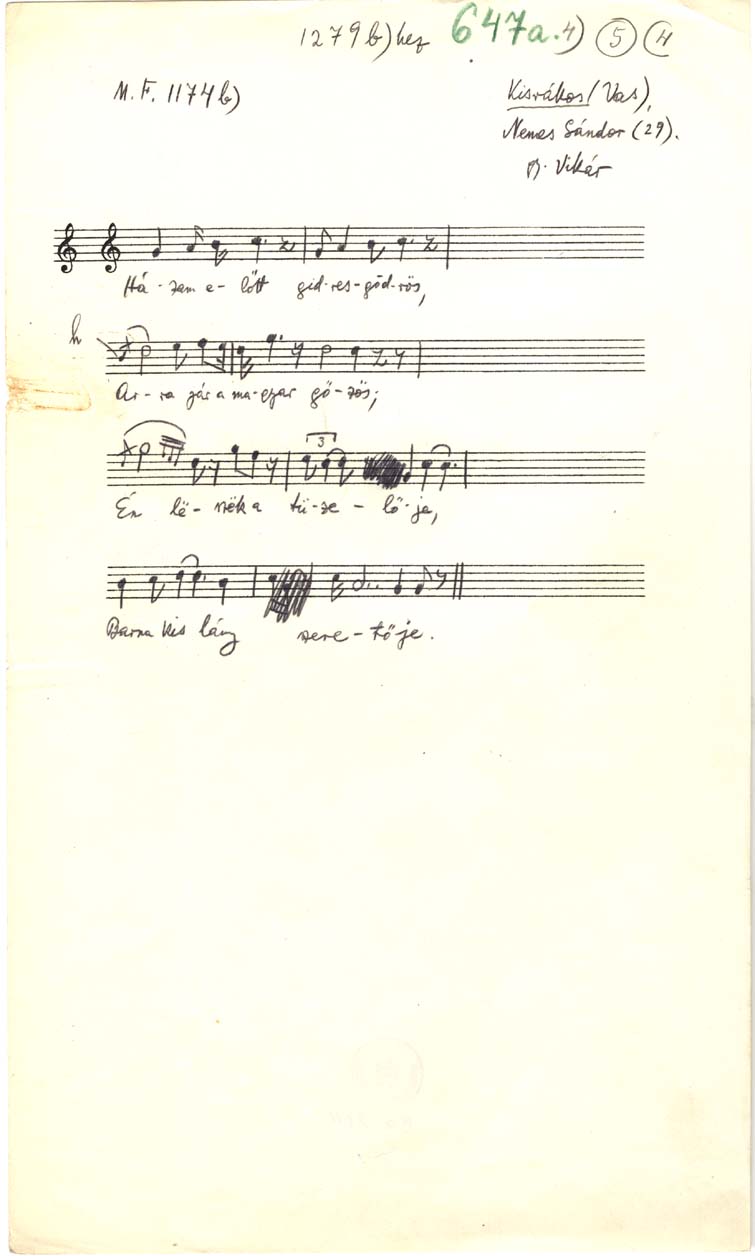 1279b)hez 647a.4) 5 4
M.F. 1174b)
Kisrákos (Vas),
Nemes Sándor (29).
Vikár
Há-zam e-lőtt gid-res-göd-rös,
h
Ar-ra jár a ma-gyar gő-zös;
3
Én lë-szëk a tü-ze-lő-je,
Barna kis lány szere-tője.